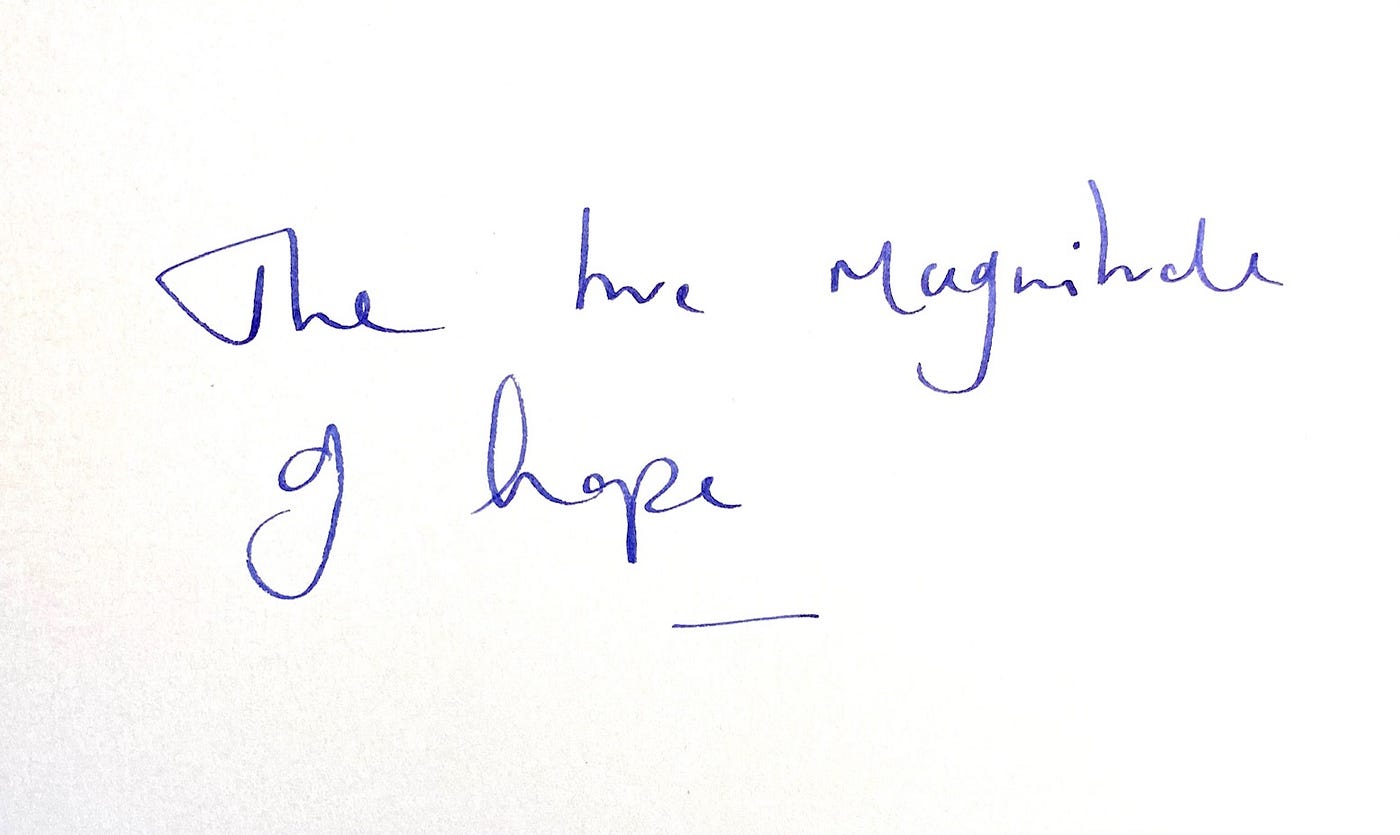 The true Magnitude
of hope